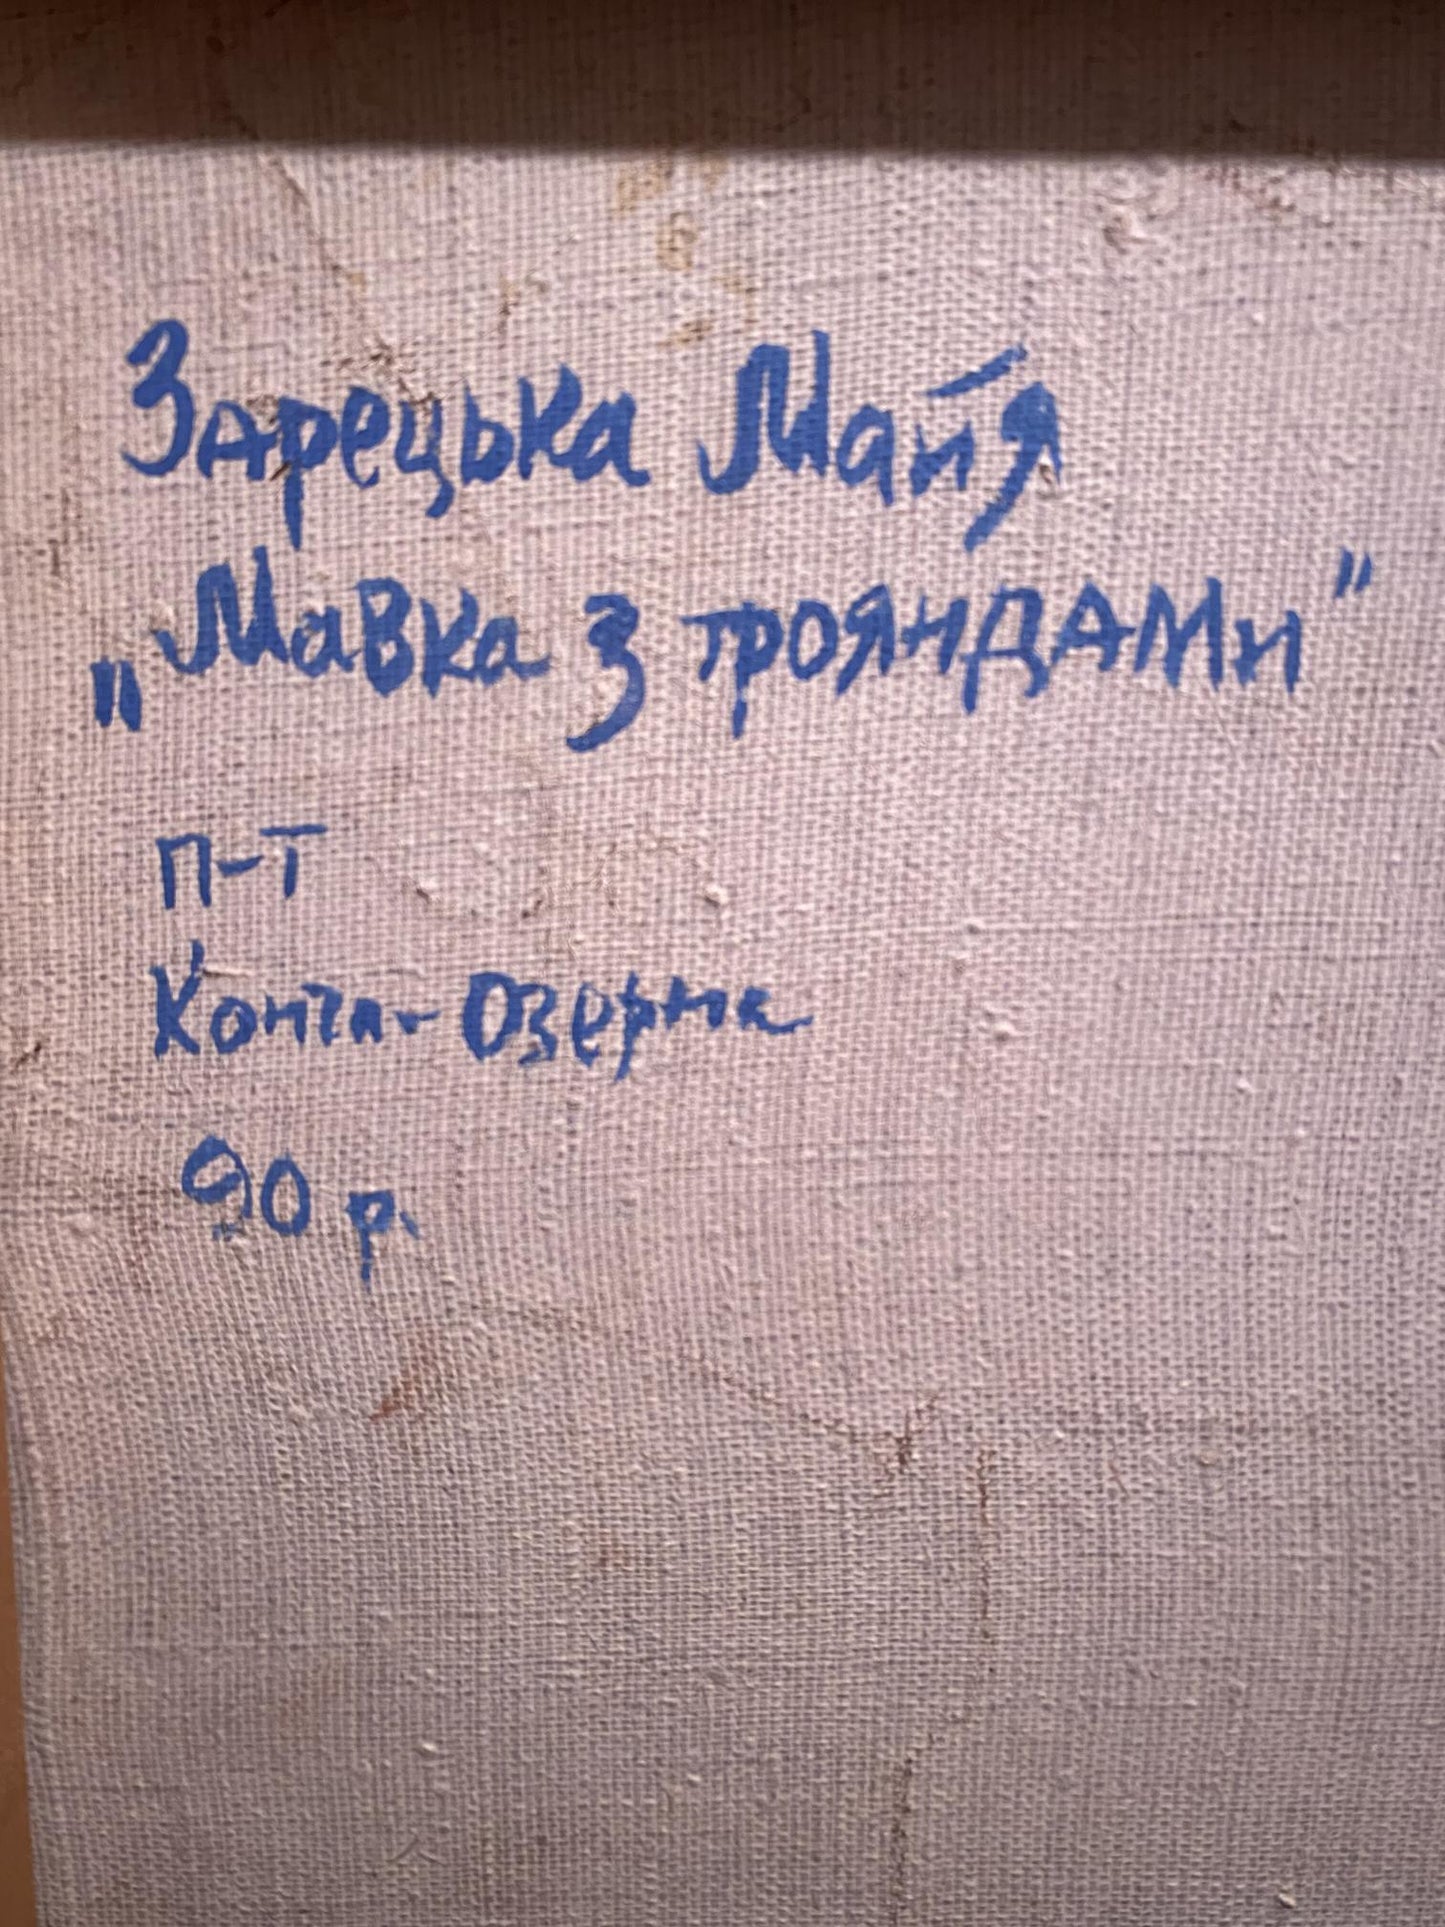 Зарецька Майя
„Мавка з трояндами"
П-Т
Конча-Озерна
90 р.